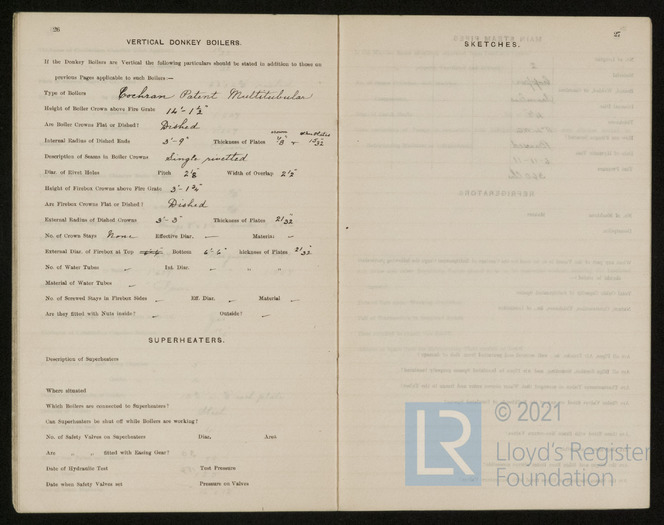 26
VERTICAL DONKEY BOILERS.
If the Donkey Boilers are Vertical the following particulars should be stated in addition to those on
previous Pages applicable to such Boilers:—
Type of Boilers Cochran Patent Multitubular
Height of Boiler Crown above Fire Grate 14'-1½"
Are Boiler Crowns Flat or Dished? Dished
Internal Radius of Dished Ends 5'-9" Thickness of Plates
Description of Seams in Boiler Crowns Single rivetted
Diar. of Rivet Holes Pitch Width of Overlap 2½"
Height of Firebox Crowns above Fire Grate 3'-1¾"
Are Firebox Crowns Flat or Dished? Dished
External Radius of Dished Crowns 3'-3" Thickness of Plates 21/32"
No. of Crown Stays None Effective Diar. — Material —
External Diar. of Firebox at Top Bottom 6'-6" thickness of Plates 21/32"
No. of Water Tubes — Int. Diar. — " — " —
Material of Water Tubes —
No. of Screwed Stays in Firebox Sides — Eff. Diar. — Material —
Are they fitted with Nuts inside? — Outside? —
SUPERHEATERS.
Description of Superheaters
Where situated
Which Boilers are connected to Superheaters?
Can Superheaters be shut off while Boilers are working?
No. of Safety Valves on Superheaters Diar. Area
Are " " fitted with Easing Gear?
Date of Hydraulic Test Test Pressure
Date when Safety Valves set Pressure on Valves
27
SKETCHES.
LR
© 2021
Lloyd's Register
Foundation